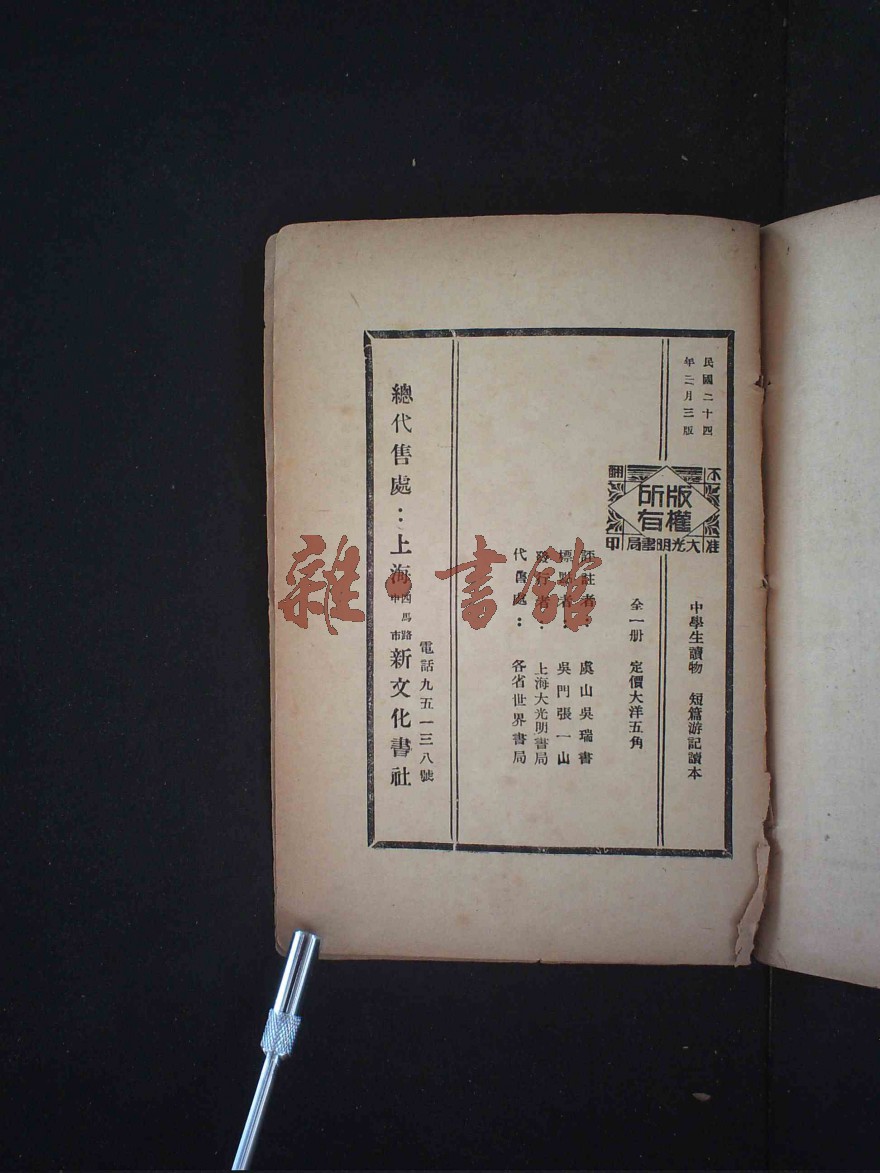 民國二十四
年二月三版
不准翻印
版權
所有
大光明書局
中學生讀物 短篇游記讀本
全一册 定價大洋五角
註者 虞山吳瑞書
標點者: 吳門張一山
發行者: 上海大光明書局
代售處: 各省世界書局
電話九五一三八號
總代售處:上海四馬路中市新文化書社
雜·書館